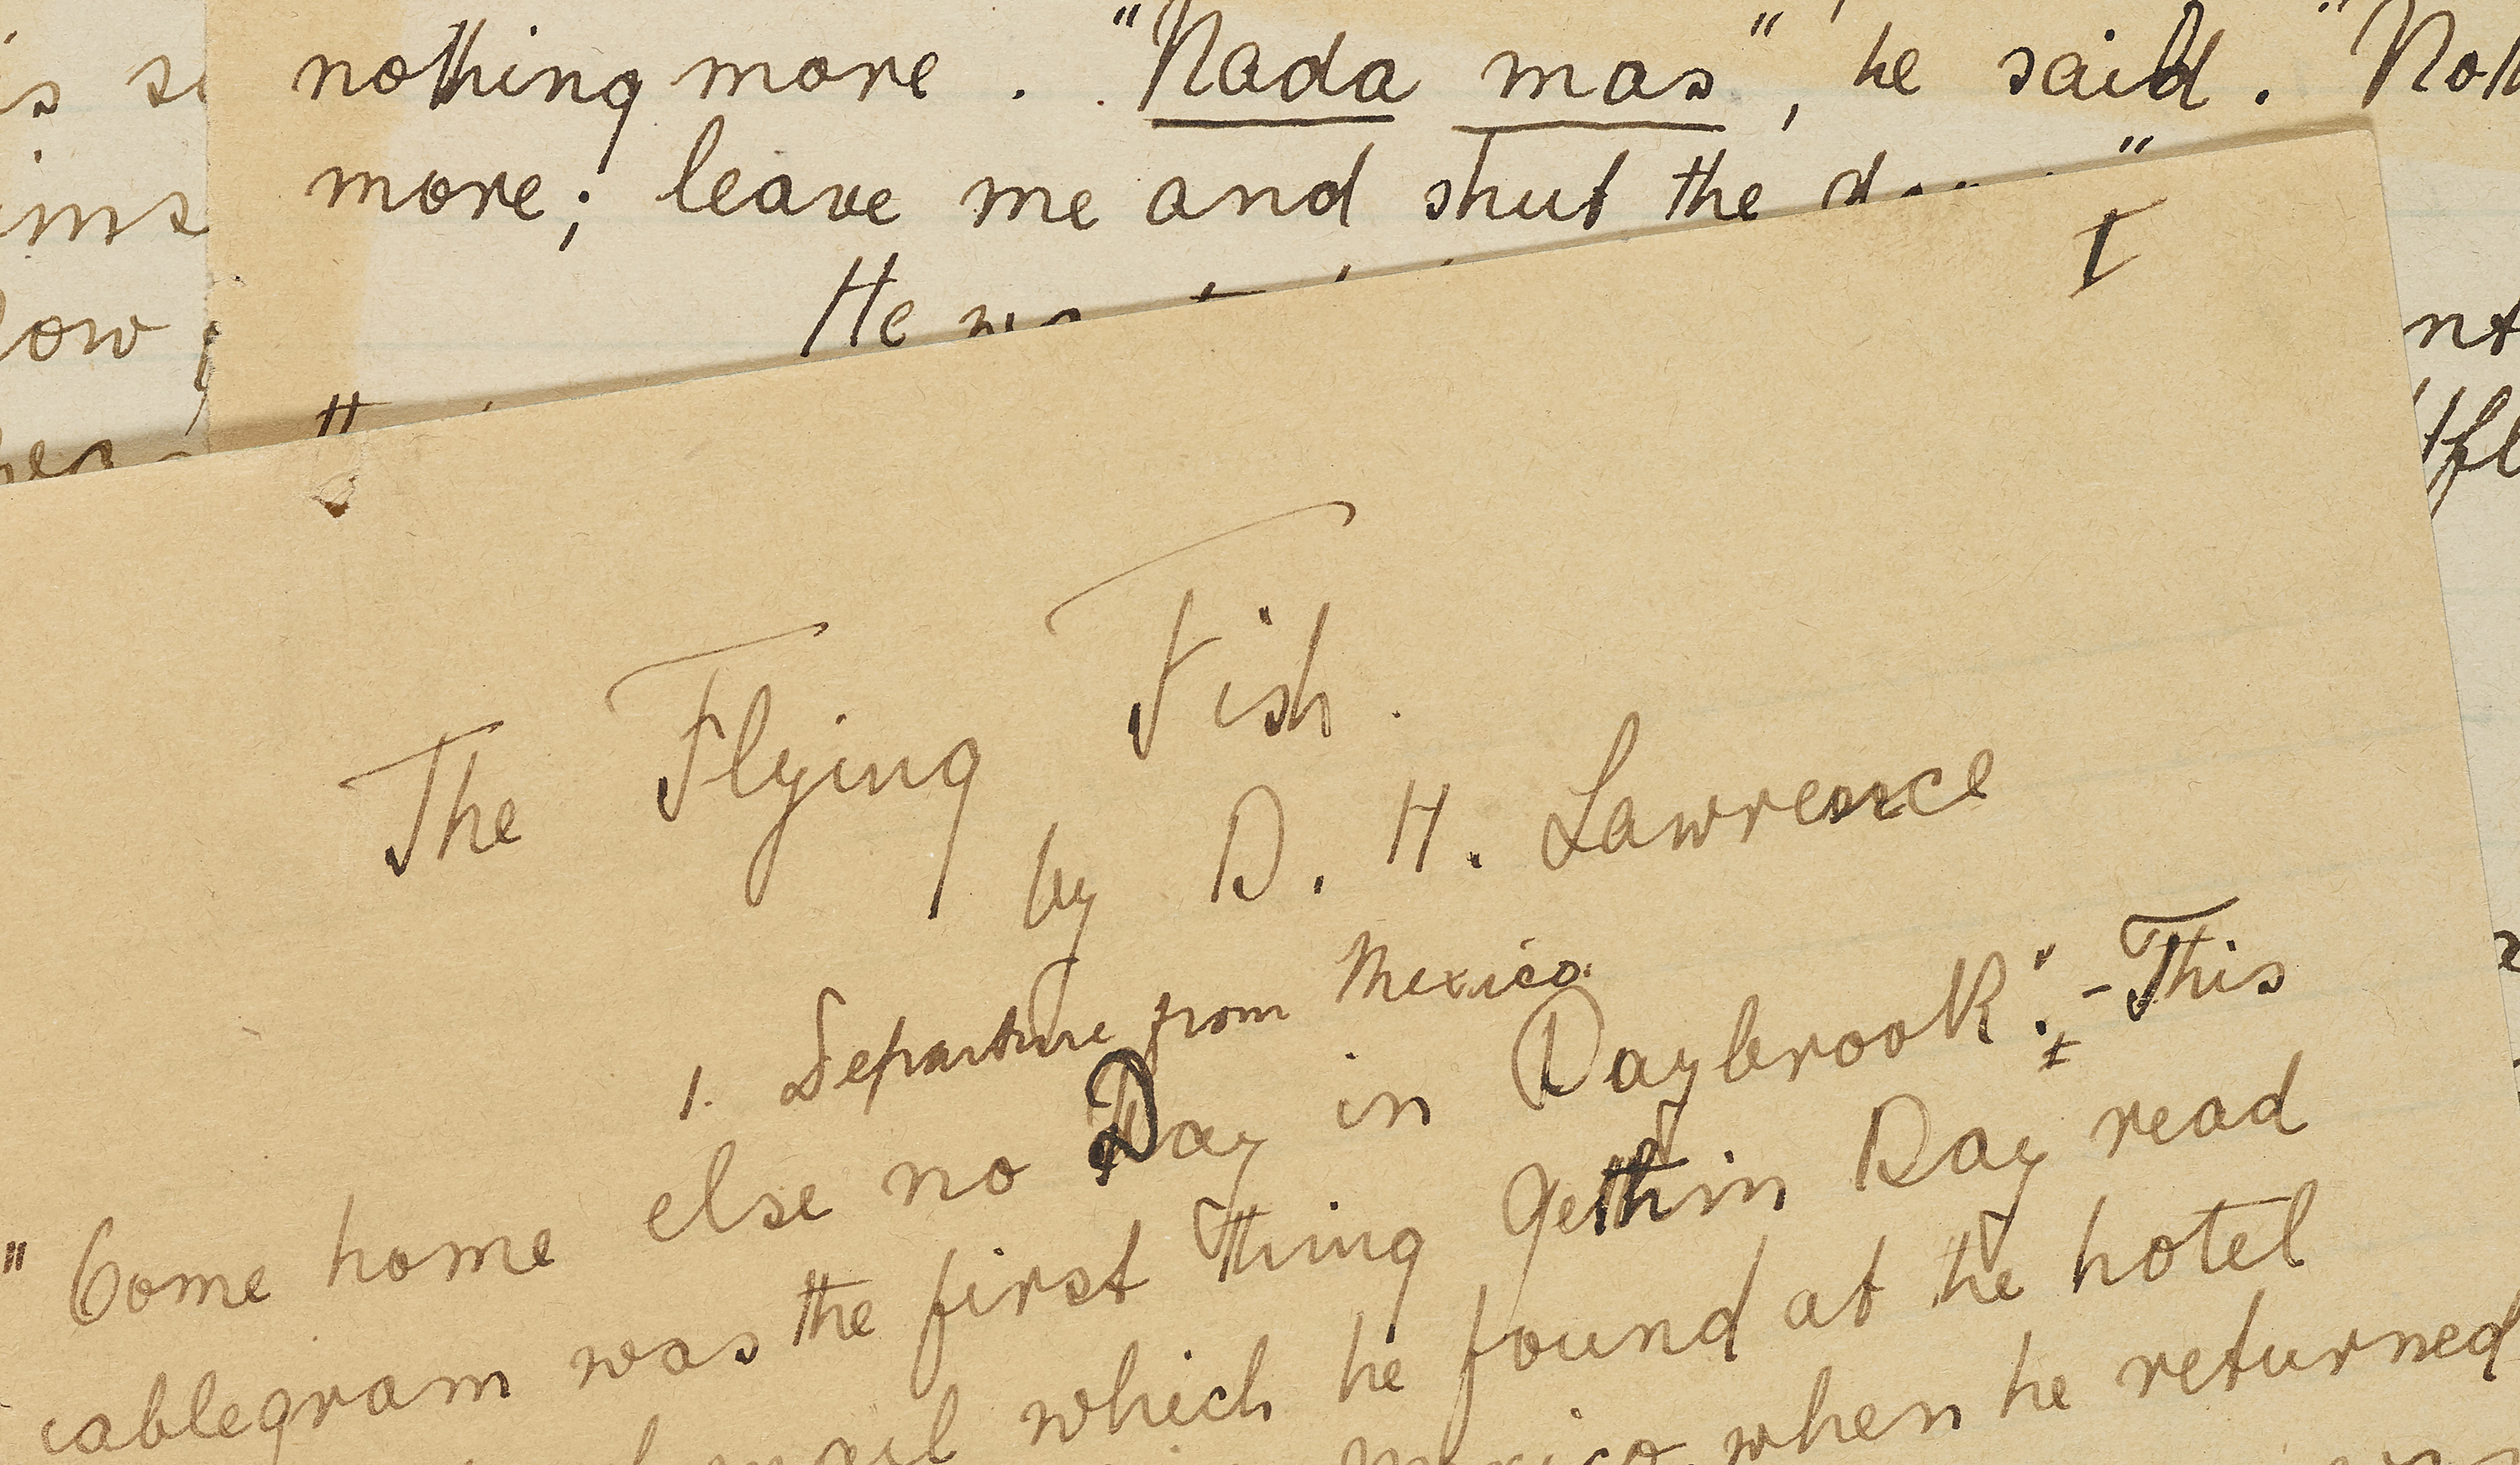 s
nothing more. "Nada mas", he said. "Noth
more; leave me and shut the
ims
He
low
nt
I
The Flying Fish.
by D. H. Lawrence
1. Departure from Mexico.
"Come home else no Day in Daybrook". - This
cablegram was the first thing Gethin Day read
which he found at the hotel
Mexico, when he returned